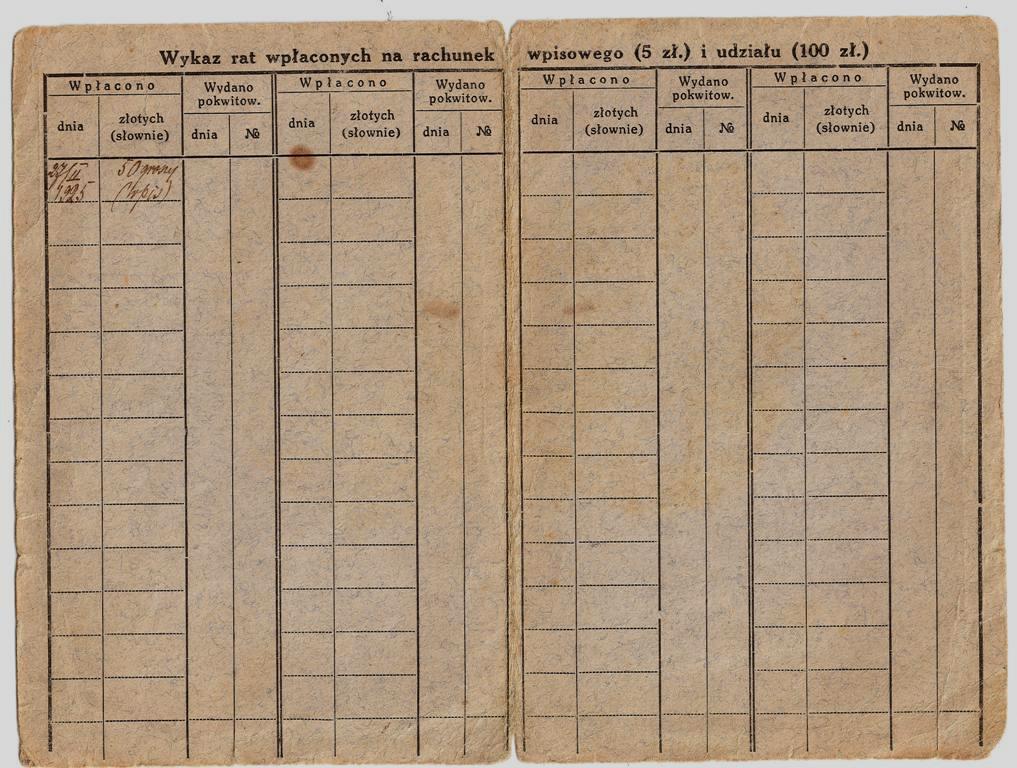 Wykaz rat wpłaconych na rachunek wpisowego (5 zł.) i udziału (100 zł.)
Wpłacono Wydano pokwitow. Wpłacono Wydano pokwitow. Wpłacono Wydano pokwitow. Wpłacono Wydano pokwitow.
dnia złotych (słownie) dnia № dnia złotych (słownie) dnia № dnia złotych (słownie) dnia № dnia złotych (słownie) dnia №
27/II 50 groszy
1925 (wpis)